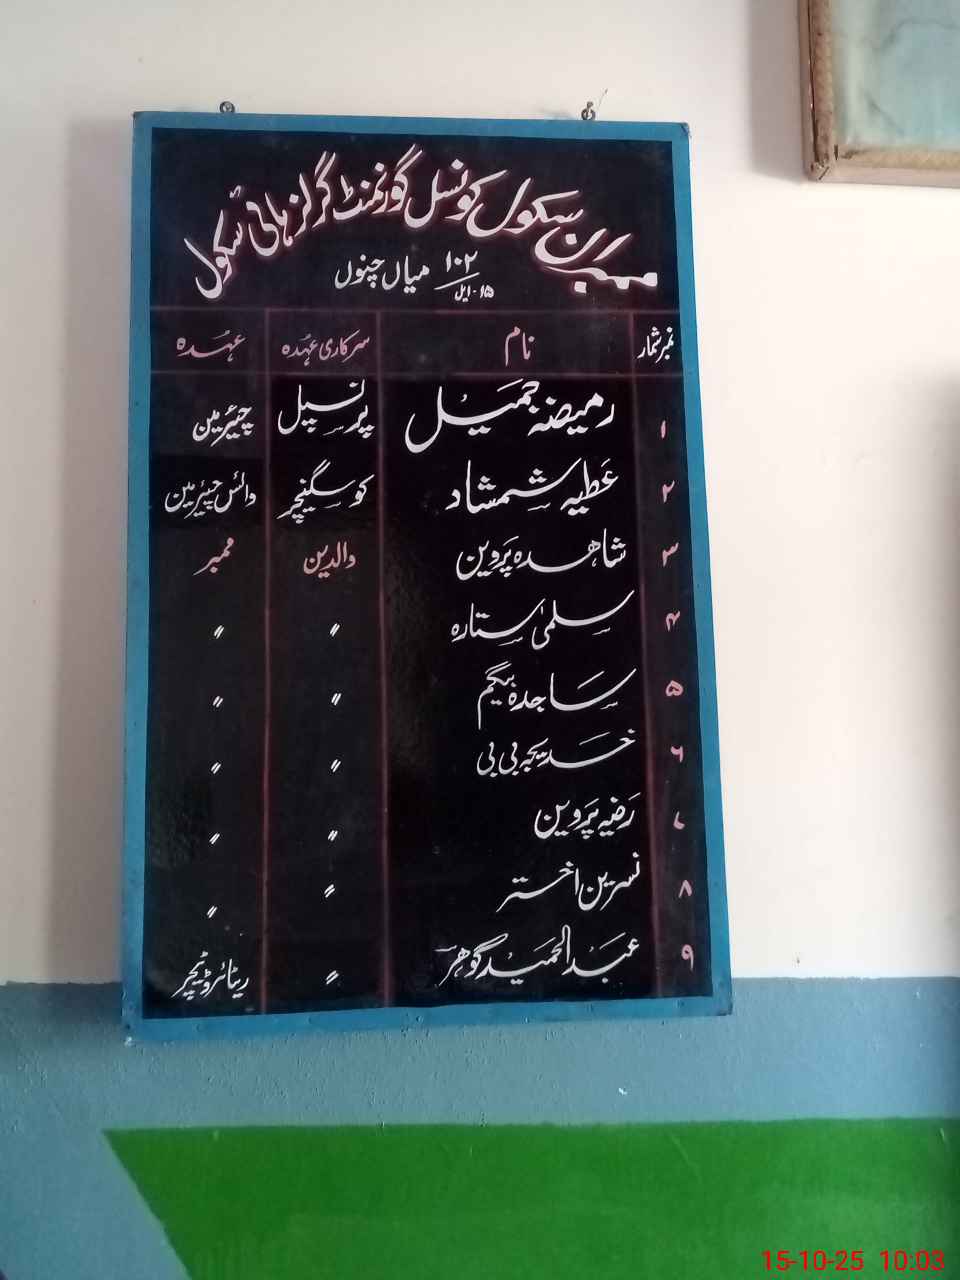 ممبران سکول کونسل گورنمنٹ گرلز ہائی سکول
۱۰۲/۱۵۔ایل میاں چنوں
نمبر شمار نام سرکاری عہدہ عہدہ
۱ رمیضہ جمیل پرنسپل چیئرمین
۲ عطیہ شمشاد کو سگنیچر وائس چیئرمین
۳ شاھدہ پروین والدین ممبر
۴ سلمیٰ ستارہ 〃 〃
۵ ساجدہ بیگم 〃 〃
۶ خدیجہ بی بی 〃 〃
۷ رضیہ پروین 〃 〃
۸ نسرین اختر 〃 〃
۹ عبدالحمید گوھر 〃 ریٹائرڈ ٹیچر
15-10-25 10:03